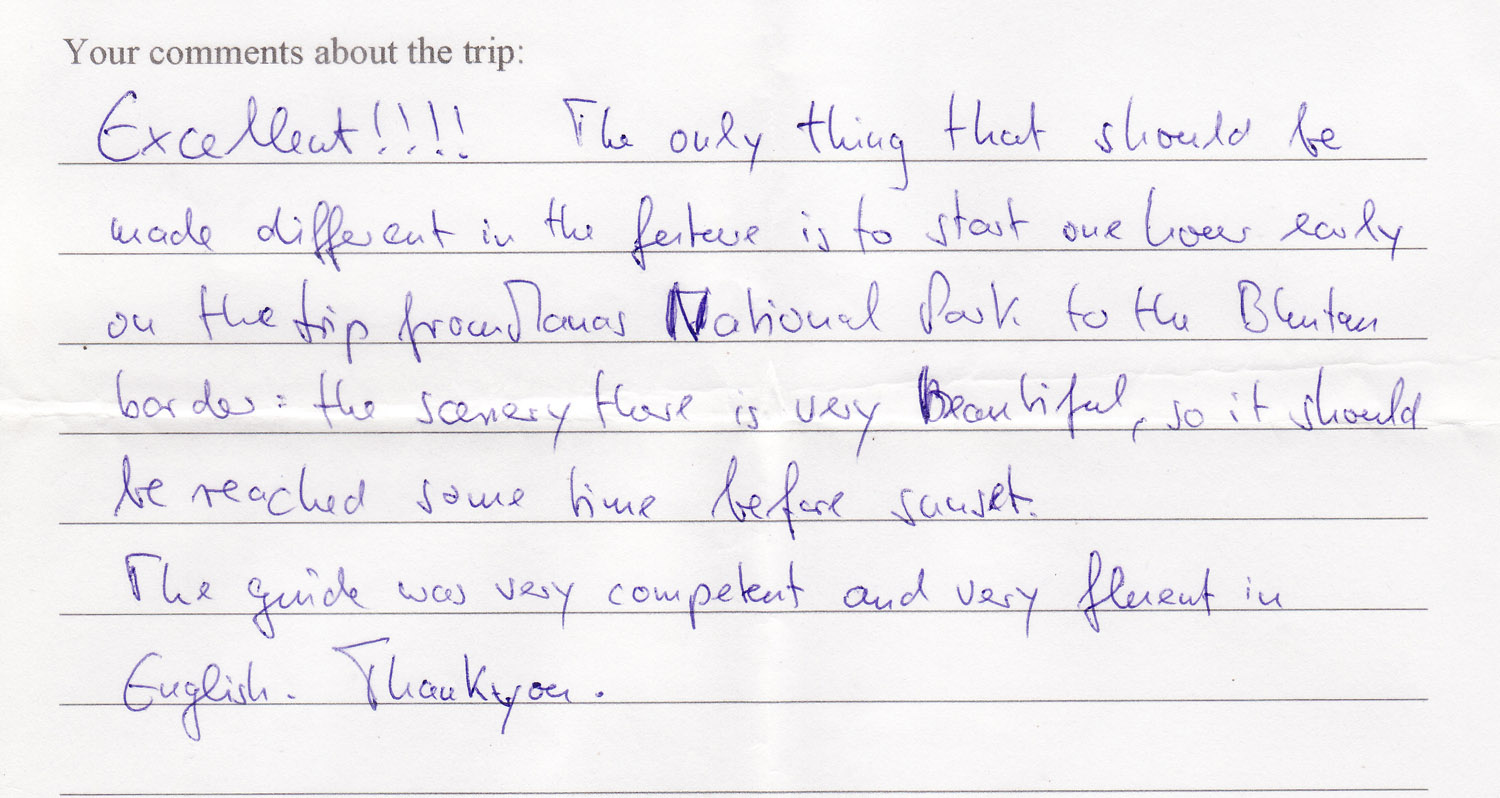 Your comments about the trip:
Excellent!!!! The only thing that should be
made different in the future is to start one hour early
on the trip from Manas National Park to the Bhutan
border: the scenery there is very Beautiful, so it should
be reached some time before sunset.
The guide was very competent and very fluent in
English. Thank you.